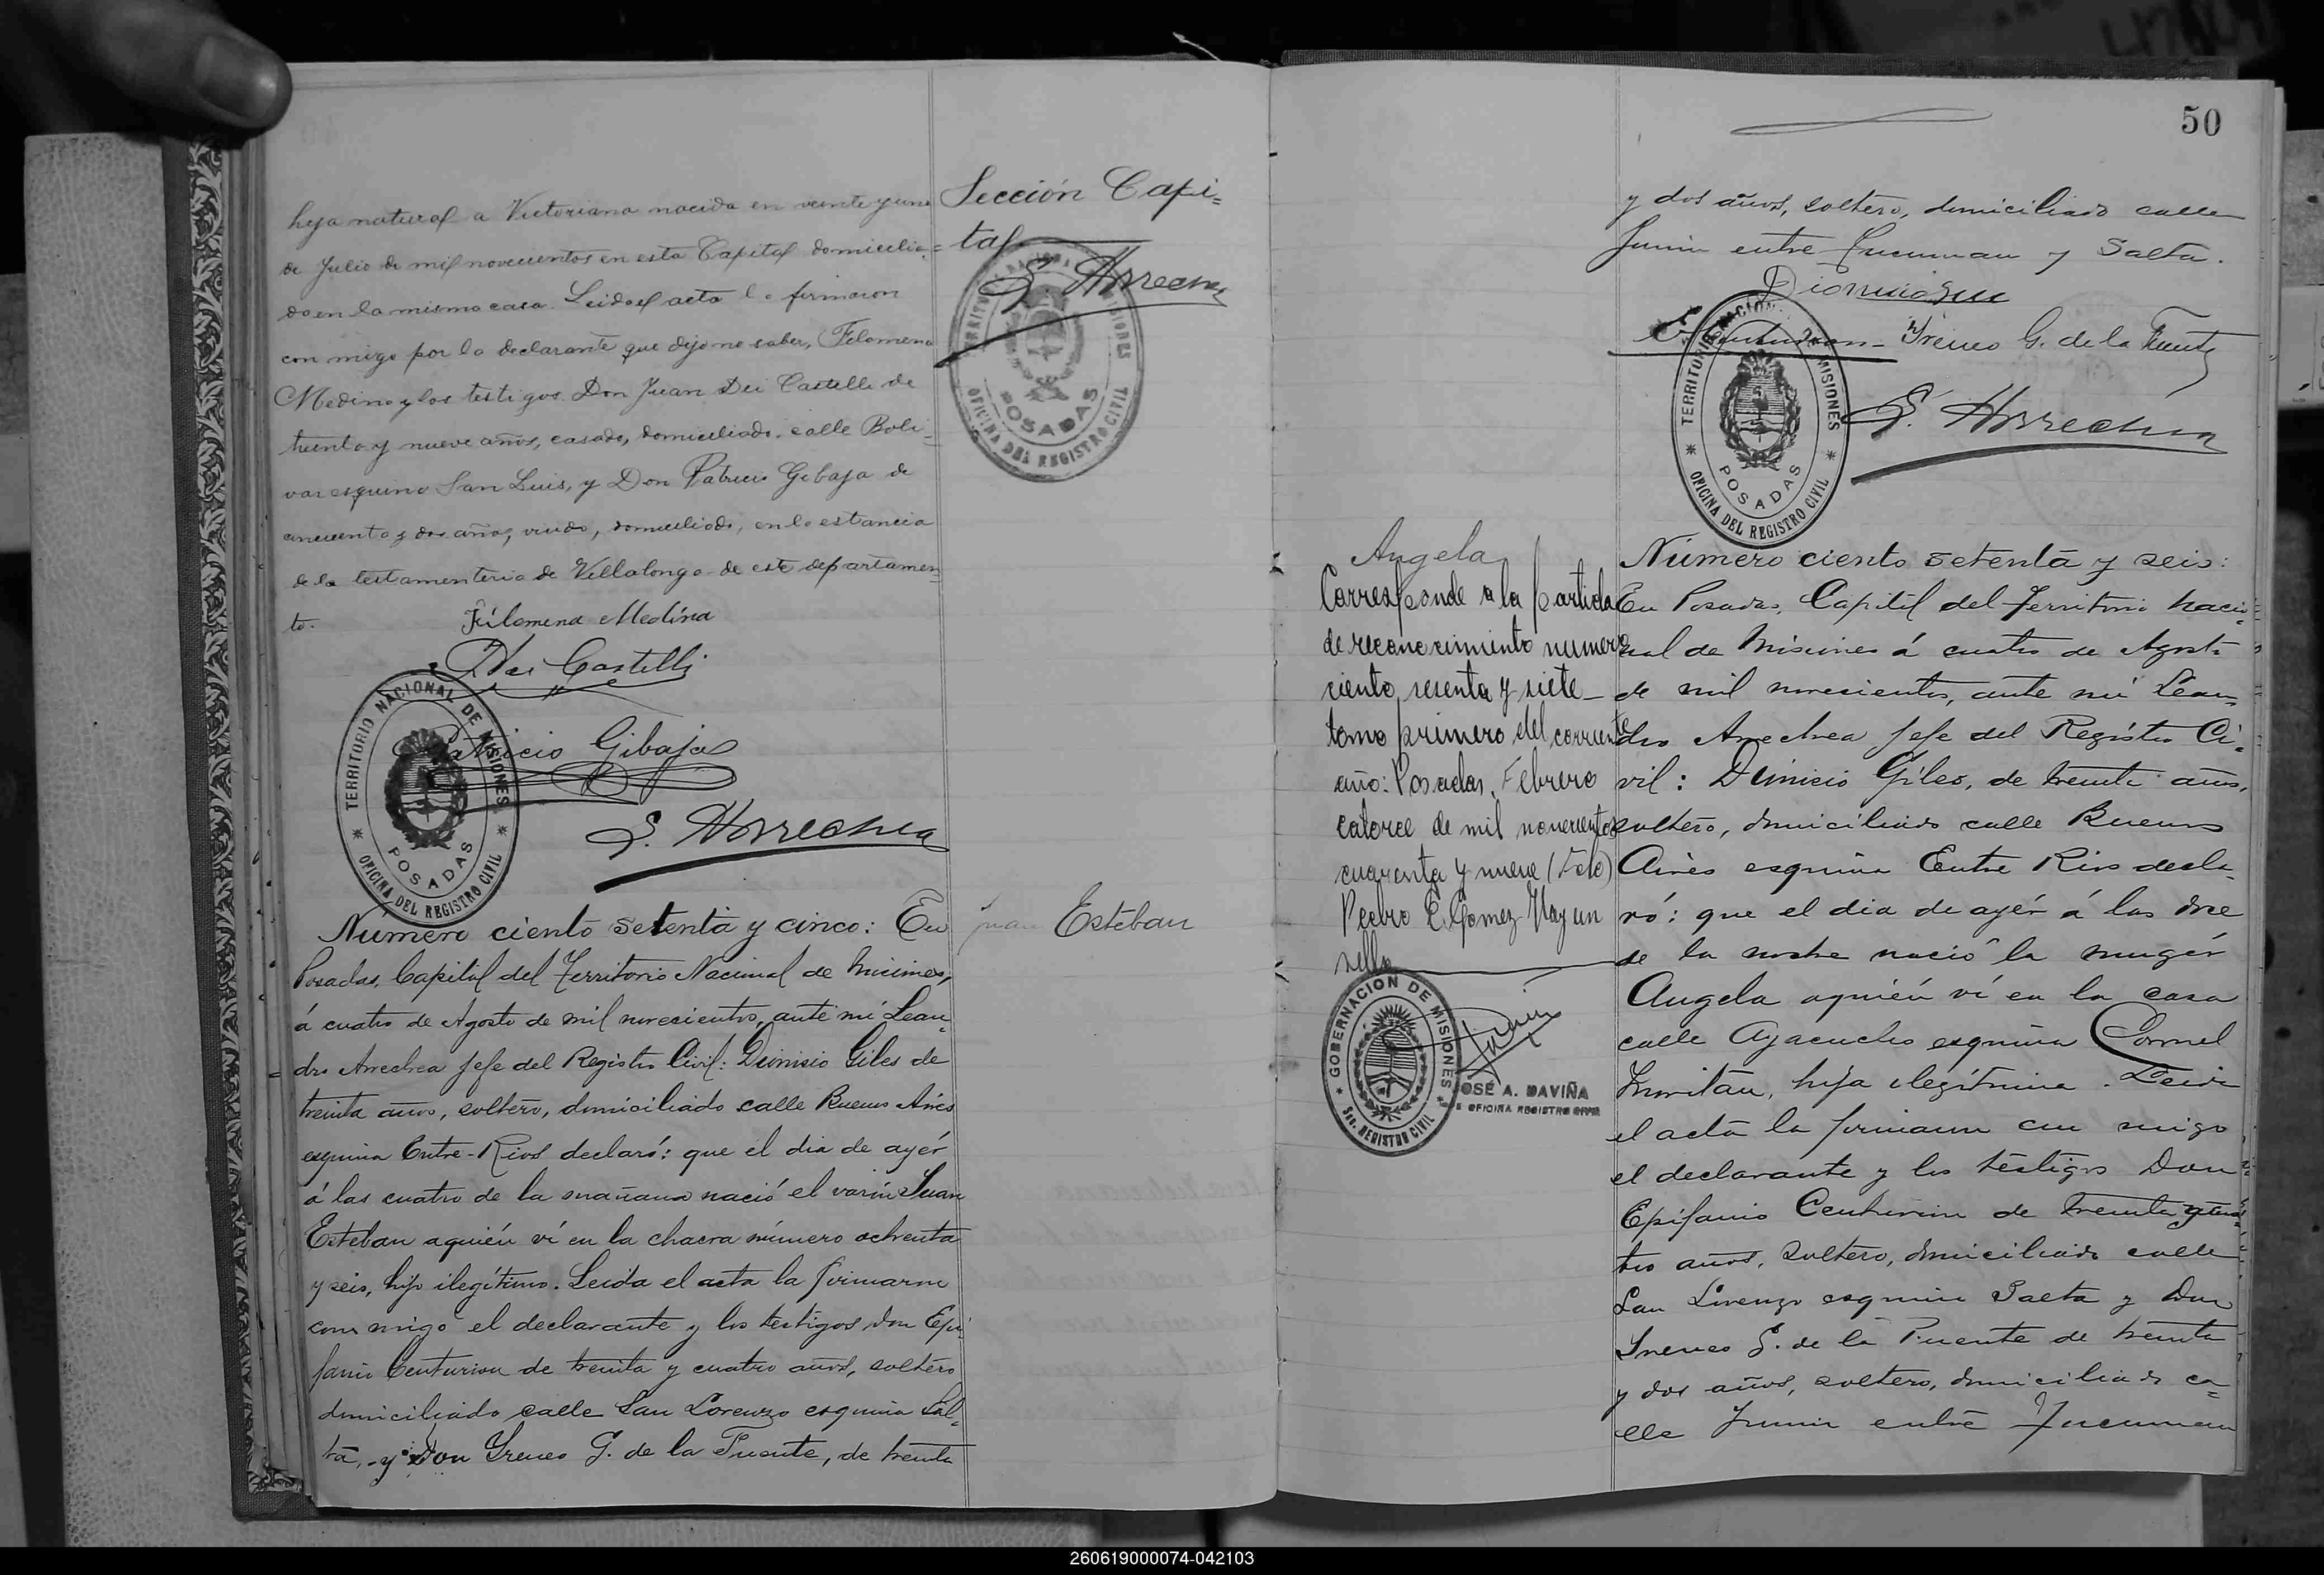 hija natural a Victoriana nacida en veinte y uno
de Julio de mil novecientos en esta Capital domicilia-
da en la misma casa. Leida el acta la firmaron
con migo por la declarante que dijo no saber, Filomena
Medina y los testigos Don Juan Dei Castelli de
treinta y nueve años, casado, domiciliado calle Boli-
var esquina San Luis, y Don Patricio Gibaja de
cincuenta y dos años, viudo, domiciliado, en la estancia
de la testamenteria de Villalonga de este departamen-
to.
Filomena Medina
Dei Castelli
Patricio Gibaja
L. Arrechea
TERRITORIO NACIONAL DE MISIONES
POSADAS
OFICINA DEL REGISTRO CIVIL
Sección Capi=
tal
L. Arrechea
POSADAS
OFICINA DEL REGISTRO CIVIL
Juan Estéban
Número ciento setenta y cinco: En
Posadas, Capital del Territorio Nacional de Misiones,
á cuatro de Agosto de mil novecientos, ante mi Lean-
dro Arrechea Jefe del Registro Civil: Dionisio Giles de
treinta años, soltero, domiciliado calle Buenos Aires
esquina Entre-Rios declaró: que el dia de ayér
á las cuatro de la mañana nació el varón Juan
Esteban aquién ví en la chacra número ochenta
y seis, hijo ilegítimo. Leida el acta la firmaron
con migo el declarante y los testigos don Epi
fanio Centurion de treinta y cuatro años, soltero
domiciliado calle San Lorenzo esquina Sal-
ta, y Don Yreneo G. de la Fuente, de treinta
50
y dos años, soltero, domiciliado calle
Junin entre Tucuman y Salta.
Dionicio Giles
E. Centurion - Yreneo G. de la Fuente
L. Arrechea
TERRITORIO NACIONAL DE MISIONES
POSADAS
OFICINA DEL REGISTRO CIVIL
Angela
Corresponde a la partida
de reconocimiento numero
ciento sesenta y siete
tomo primero del corriente
año: Posadas, Febrero
catorce de mil novecientos
cuarenta y nueve (Fdo)
Pedro E. Gomez Hay un
sello
GOBERNACION DE MISIONES
Sec. REGISTRO CIVIL
JOSÉ A. DAVIÑA
JEFE OFICINA REGISTRO CIVIL
Número ciento setenta y seis:
En Posadas, Capital del Territorio Nacio-
nal de Misiones á cuatro de Agosto
de mil novecientos, ante mi Lean-
dro Arrechea Jefe del Registro Ci-
vil: Dionisio Giles, de treinta años,
soltero, domiciliado calle Buenos
Aires esquina Entre Rios decla-
ró: que el dia de ayér á las doce
de la noche nació la mugér
Angela aquién ví en la casa
calle Ayacucho esquina Coronel
hija ilegítima. Leida
el acta la firmaron con migo
el declarante y los testigos Don
Epifanio Centurion de treinta y cua-
tro años, soltero, domiciliado calle
San Lorenzo esquina Salta y Don
Yreneo G. de la Fuente de treinta
y dos años, soltero, domiciliado ca-
lle Junin entre Tucuman
260619000074-042103